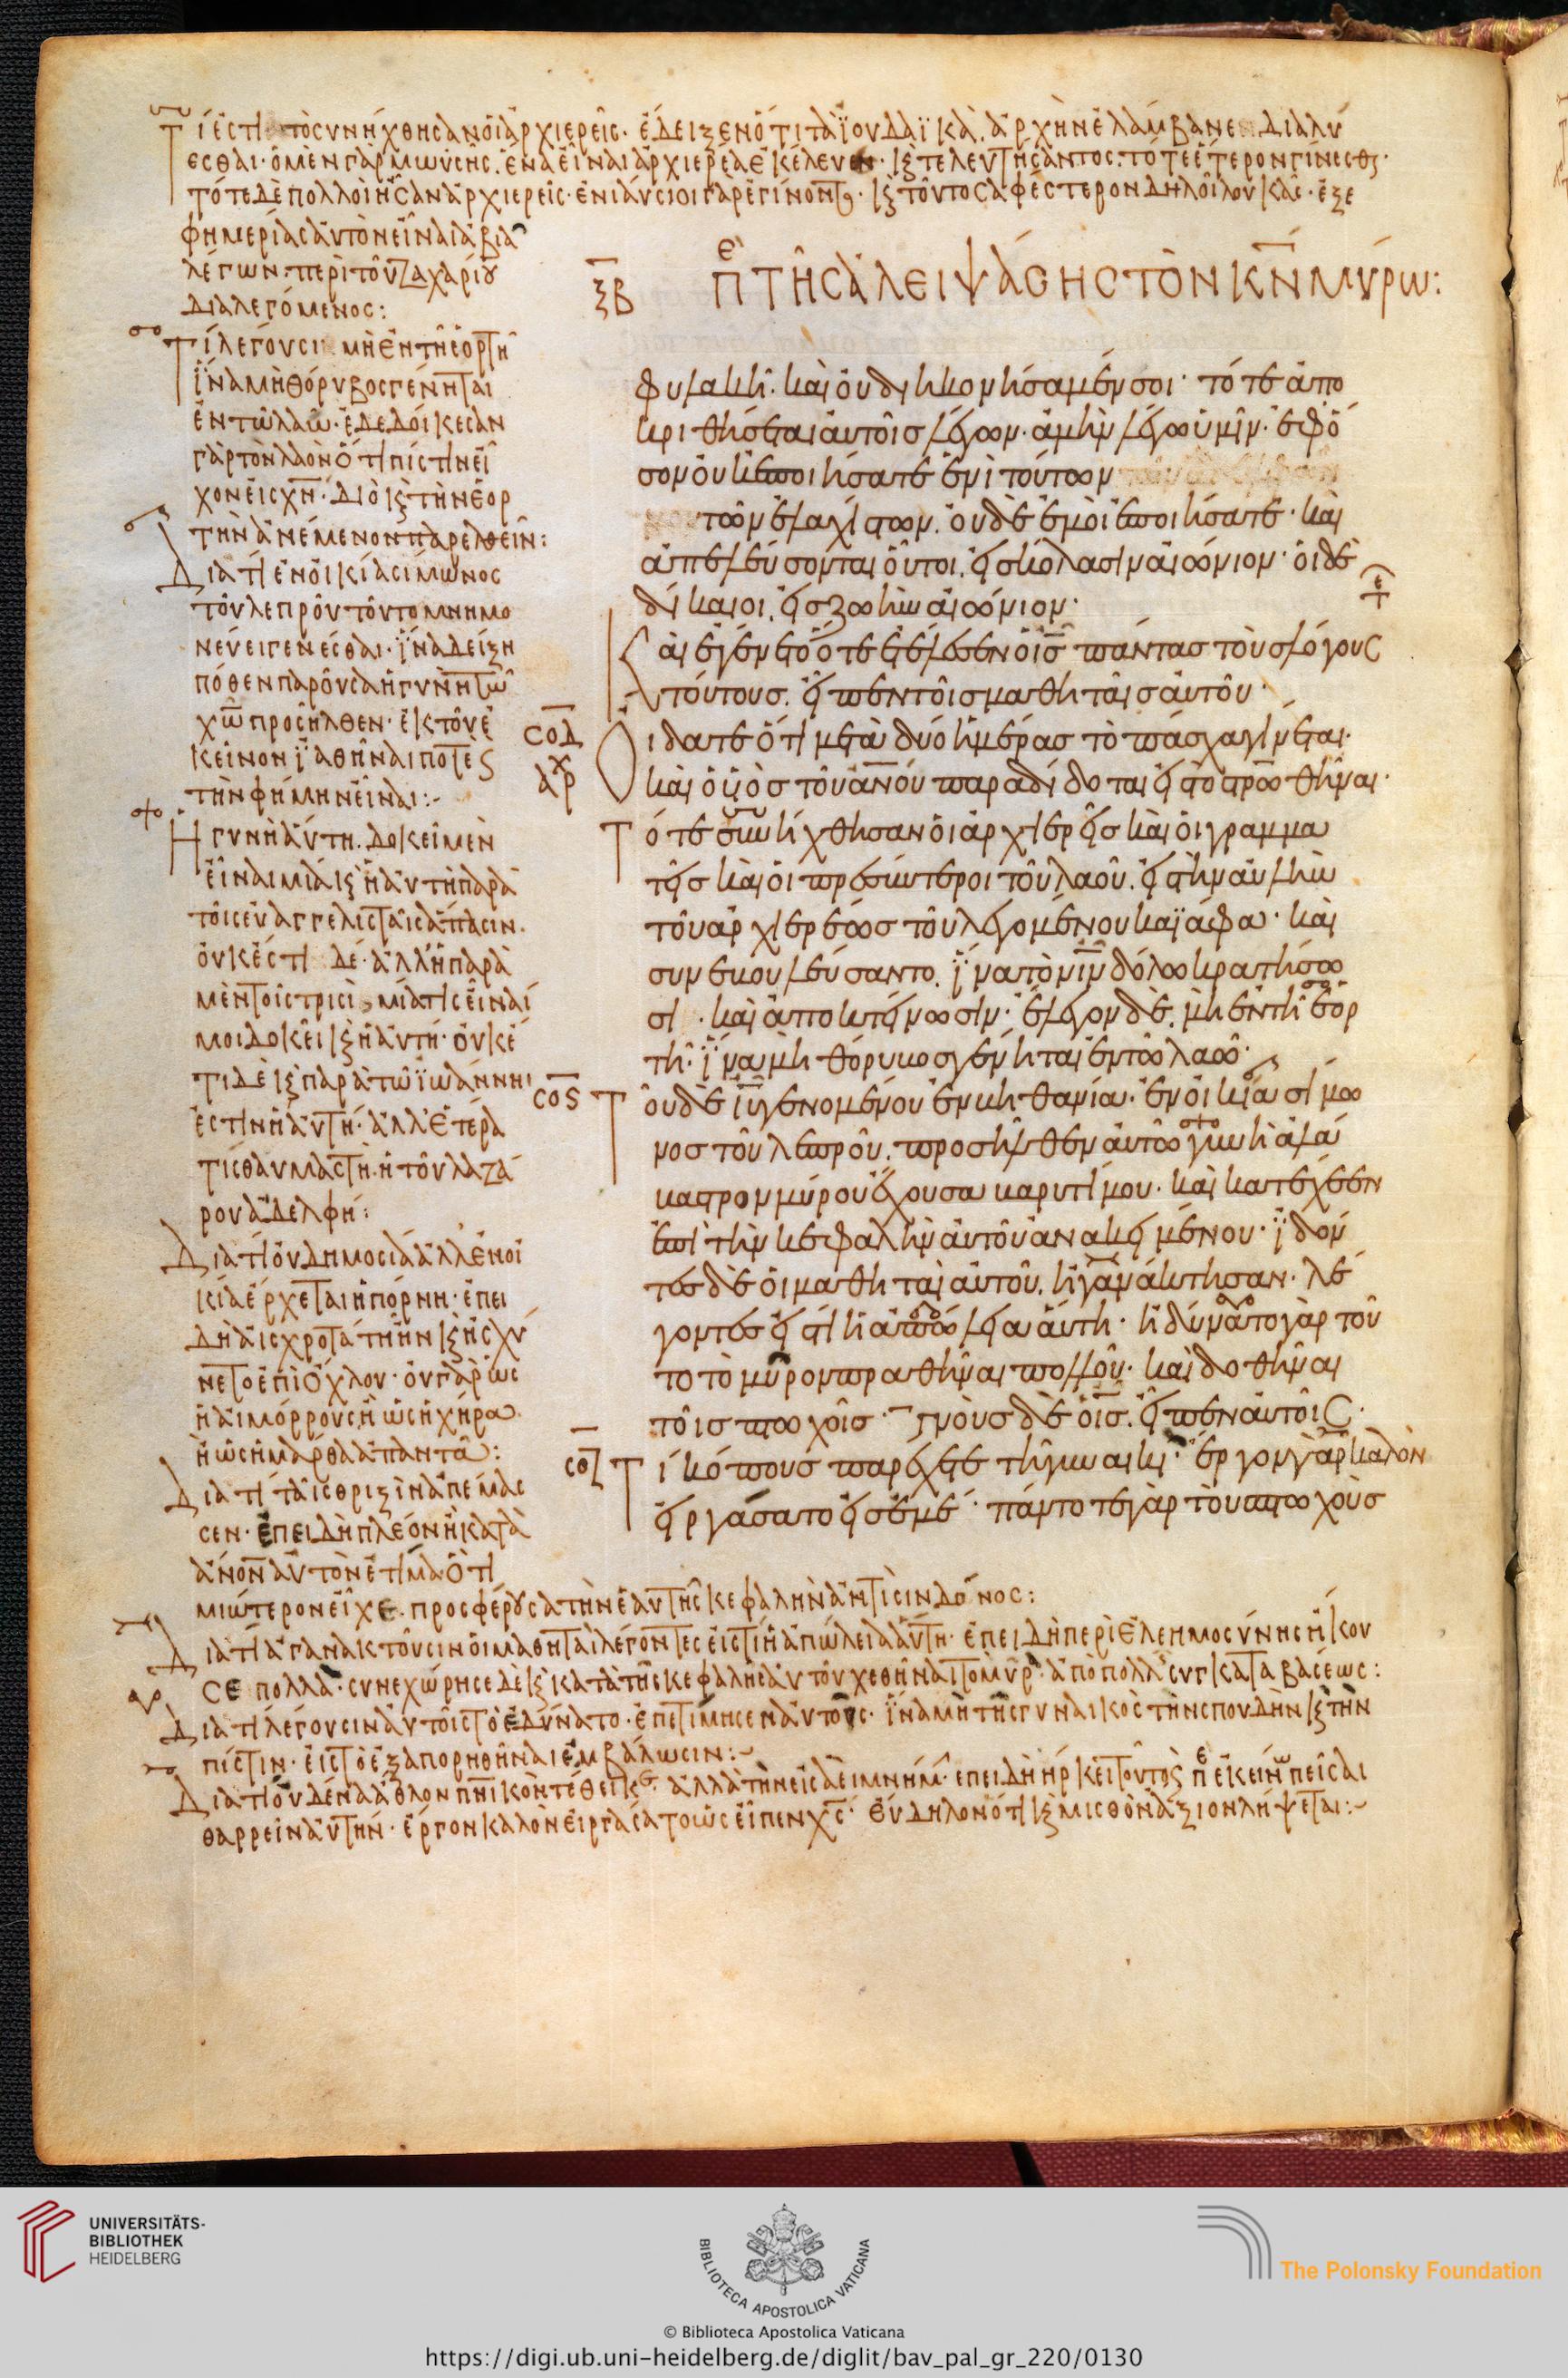 Τί ἐστὶ τὸ συνήχθησαν οἱ ἀρχιερεῖς· ἔδειξεν ὅτι τὰ ἰουδαϊκὰ ἀρχὴν ἐλάμβανε διαλύ
εσθαι· ὁ μὲν γὰρ μωϋσῆς ἕνα εἶναι ἀρχιερέα ἐκέλευεν· κ τελευτήσαντος· τότε ἕτερον γίνεσθαι·
τότε δὲ πολλοὶ ἦσαν ἀρχιερεῖς· ἐνιαύσιοι γὰρ ἐγίνοντο· κ τοῦτο σαφέστερον δηλοῖ λουκᾶς· ἐξ ἐ
φημερίας αὐτὸν εἶναι ἀβιὰ
λέγων· περὶ τοῦ ζαχαρίου
διαλεγόμενος:
ξβ Π ΤΗΣ ΑΛΕΙΨΑΣΗΣ ΤΟΝ ΚΝ ΜΥΡΩ:
Τί λέγουσι μὴ ἐν τῆ ἑορτῆ
ἵνα μὴ θόρυβος γένηται
ἐν τῶ λαῶ· ἐδεδοίκεσαν
γὰρ τὸν λαὸν ὅτι πίστιν εἶ
χον εἰς χν· διὸ κ τὴν ἑορ
τὴν ἀνέμενον παρελθεῖν:
Διατί ἐν οἰκία σίμωνος
τοῦ λεπροῦ τοῦτο μνημο
νεύει γενέσθαι· ἵνα δείξη
πόθεν παροῦσα ἡ γυνὴ τῶ
χω προσῆλθεν· ἐκ τοῦ ἐ
κεῖνον ἰαθῆναι ποτὲ
τὴν φήμην εἶναι:
Ἡ γυνὴ αὕτη· δοκεῖ μὲν
εἶναι μία κ ἡ αὐτὴ παρὰ
τοῖς εὐαγγελισταῖς ἅπασιν·
οὐκ ἔστι δέ· ἀλλ' ἡ παρὰ
μὲν τοῖς τρισὶ μία τις εἶναί
μοι δοκεῖ κ ἡ αὐτή· οὐκ ἔ
τι δὲ κ παρὰ τῶ ἰωάννηι
ἐστὶν ἡ αὐτή· ἀλλ' ἑτέρα
τις θαυμαστή· ἡ τοῦ λαζά
ρου ἀδελφή:
Διατί οὐ δημοσία ἀλλ' ἐν οἰ
κία ἔρχεται ἡ πόρνη· ἐπει
δὴ αἰσχροτάτη ἦν κ ἠσχύ
νετο ἐπὶ ὄχλου· οὐ γὰρ ὡς
ἡ αἱμόρρους ἢ ὡς ἡ χήρα
ἢ ὡς ἡ μάρθα ἀπαντᾶ:
Διατί ταῖς θριξὶν ἀπέμασ
σεν· ἐπειδὴ πλέον ἢ κατὰ
ανον αὐτὸν ἐτίμα· ὅτι
μιώτερον εἶχε· προσφέρουσα τὴν ἑαυτῆς κεφαλὴν ἀντὶ σινδόνος:
Διατί ἀγανακτοῦσιν οἱ μαθηταὶ λέγοντες εἰς τί ἡ ἀπώλεια αὕτη· ἐπειδὴ περὶ ἐλεημοσύνης ἤκου
σε πολλὰ· συνεχώρησε δὲ κ κατὰ τῆς κεφαλῆς αὐτοῦ χεθῆναι τὸ μύρ· ἀπὸ πολλῆς συγκαταβάσεως:
Διατί λέγουσιν αὐτοῖς τὸ ἐδύνατο· ἐπετίμησεν αὐτοῖς· ἵνα μὴ τῆς γυναικὸς τὴν σπουδὴν κ τὴν
πίστιν· εἰς τὸ ἐξαπορηθῆναι ἐμβάλωσιν:
Διατί οὐδὲν ἆθλον πνικὸν τέθεικε· ἀλλὰ τὴν εἰς ἀεὶ μνήμ· ἐπειδὴ ἤρκει τοῦτο π ἐκείνων πεῖσαι
θαρρεῖν αὐτήν· ἔργον καλὸν εἰργάσατο ὡς εἶπεν χς· εὔδηλον ὅτι κ μισθὸν ἄξιον λήψεται:
φυλακῆ· καὶ οὐ διηκονήσαμέν σοι· τότε ἀπο
κριθήσεται αὐτοῖς λέγων· ἀμὴν λέγω ὑμῖν· ἐφ' ὅ
σον οὐκ ἐποιήσατε ἑνὶ τούτων
τῶν ἐλαχίστων· οὐδὲ ἐμοὶ ἐποιήσατε· καὶ
ἀπελεύσονται οὗτοι εἰς κόλασιν αἰώνιον· οἱ δὲ
δίκαιοι εἰς ζωὴν αἰώνιον·
Καὶ ἐγένετο ὅτε ἐτέλεσεν ὁ ις πάντας τοὺς λόγους
τούτους· εἶπεν τοῖς μαθηταῖς αὐτοῦ·
σοδ Οἴδατε ὅτι μετὰ δύο ἡμέρας τὸ πάσχα γίνεται·
ἀρχ καὶ ὁ υἱὸς τοῦ ανου παραδίδοται εἰς τὸ στρωθῆναι·
Τότε συνήχθησαν οἱ ἀρχιερεῖς καὶ οἱ γραμμα
τεῖς καὶ οἱ πρεσβύτεροι τοῦ λαοῦ εἰς τὴν αὐλὴν
τοῦ ἀρχιερέως τοῦ λεγομένου καϊάφα· καὶ
συνεβουλεύσαντο ἵνα τὸν ιν δόλω κρατήσω
σι· καὶ ἀποκτείνωσιν· ἔλεγον δὲ· μὴ ἐν τῆ ἑορ
τῆ· ἵνα μὴ θόρυβος γένηται ἐν τῶ λαῶ·
σοϛ Τοῦ δὲ ιυ γενομένου ἐν βηθανία· ἐν οἰκία σίμω
νος τοῦ λεπροῦ· προσῆλθεν αὐτῶ γυνὴ ἀλά
βαστρον μύρου ἔχουσα βαρυτίμου· καὶ κατέχεεν
ἐπὶ τὴν κεφαλὴν αὐτοῦ ἀνακειμένου· ἰδόν
τες δὲ οἱ μαθηταὶ αὐτοῦ· ἠγανάκτησαν· λέ
γοντες εἰς τί ἡ ἀπώλεια αὕτη· ἠδύνατο γὰρ τοῦ
το τὸ μύρον πραθῆναι πολλοῦ· καὶ δοθῆναι
τοῖς πτωχοῖς· γνοὺς δὲ ὁ ις· εἶπεν αὐτοῖς·
σοζ Τί κόπους παρέχετε τῆ γυναικί· ἔργον γὰρ καλὸν
εἰργάσατο εἰς ἐμέ· πάντοτε γὰρ τοὺς πτωχοὺς
UNIVERSITÄTS-
BIBLIOTHEK
HEIDELBERG
BIBLIOTECA APOSTOLICA VATICANA
The Polonsky Foundation
© Biblioteca Apostolica Vaticana
https://digi.ub.uni-heidelberg.de/diglit/bav_pal_gr_220/0130